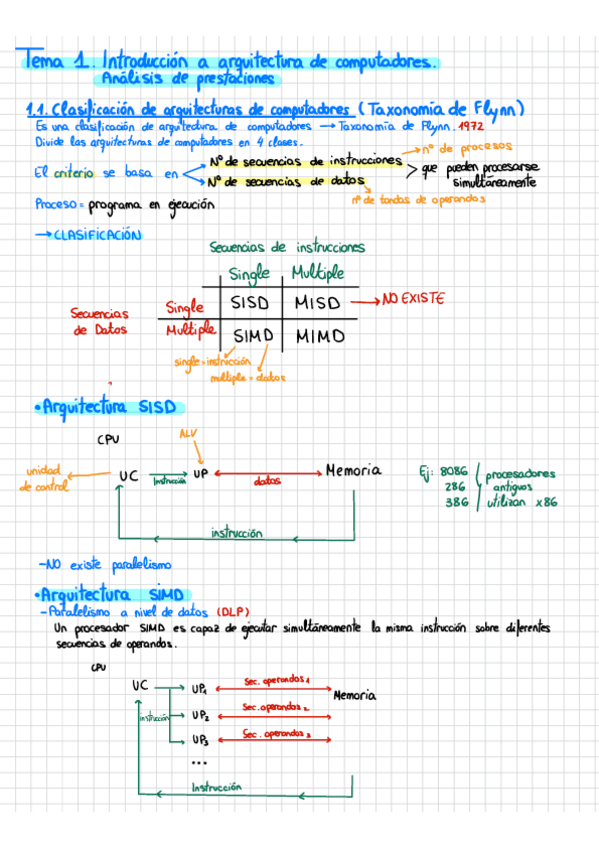 Tema 1. Introducción a arquitectura de computadores.
Análisis de prestaciones
1.1. Clasificación de arquitecturas de computadores (Taxonomía de Flynn)
Es una clasificación de arquitectura de computadores → Taxonomía de Flynn. 1972
Divide las arquitecturas de computadores en 4 clases.
→ nº de procesos
El criterio se basa en
Nº de secuencias de instrucciones
Nº de secuencias de datos
que pueden procesarse
simultáneamente
nº de tandas de operandos
Proceso = programa en ejecución
→ CLASIFICACIÓN
Secuencias de instrucciones
Single Multiple
Secuencias
de Datos
Single SISD MISD → NO EXISTE
Multiple SIMD MIMD
single = instrucción
multiple = datos
• Arquitectura SISD
CPU
ALU
unidad
de control
UC Instrucción UP datos Memoria
instrucción
Ej: 8086
286
386
procesadores
antiguos
utilizan x86
- NO existe paralelismo
• Arquitectura SIMD
- Paralelismo a nivel de datos (DLP)
Un procesador SIMD es capaz de ejecutar simultáneamente la misma instrucción sobre diferentes
secuencias de operandos.
CPU
UC UP1 Sec. operandos 1 Memoria
instrucción UP2 Sec. operandos 2
UP3 Sec. operandos 3
...
Instrucción